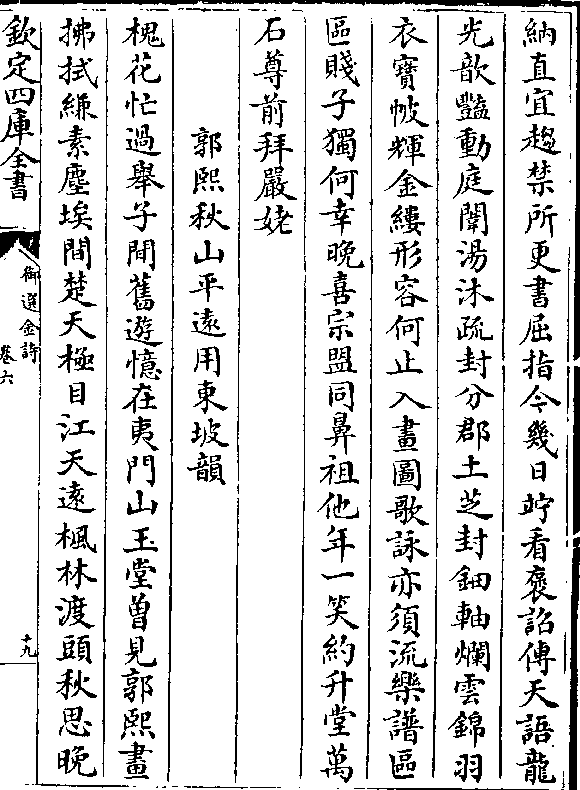 納直宜趨禁所更書屈指今幾日竚看褒詔傳天語龍
光歆豔動庭闈湯沐疏封分郡土芝封鈿軸爛雲錦羽
衣寶帔輝金縷形容何止入畫圖歌詠亦須流樂譜區
區賤子獨何幸晚喜宗盟同鼻祖他年一笑約升堂萬
石尊前拜嚴姥
郭熙秋山平遠用東坡韻
槐花忙過舉子間舊遊憶在夷門山玉堂曾見郭熙畫
拂拭縑素塵埃間楚天極目江天遠楓林渡頭秋思晚
欽定四庫全書
御選金詩
卷六
十九